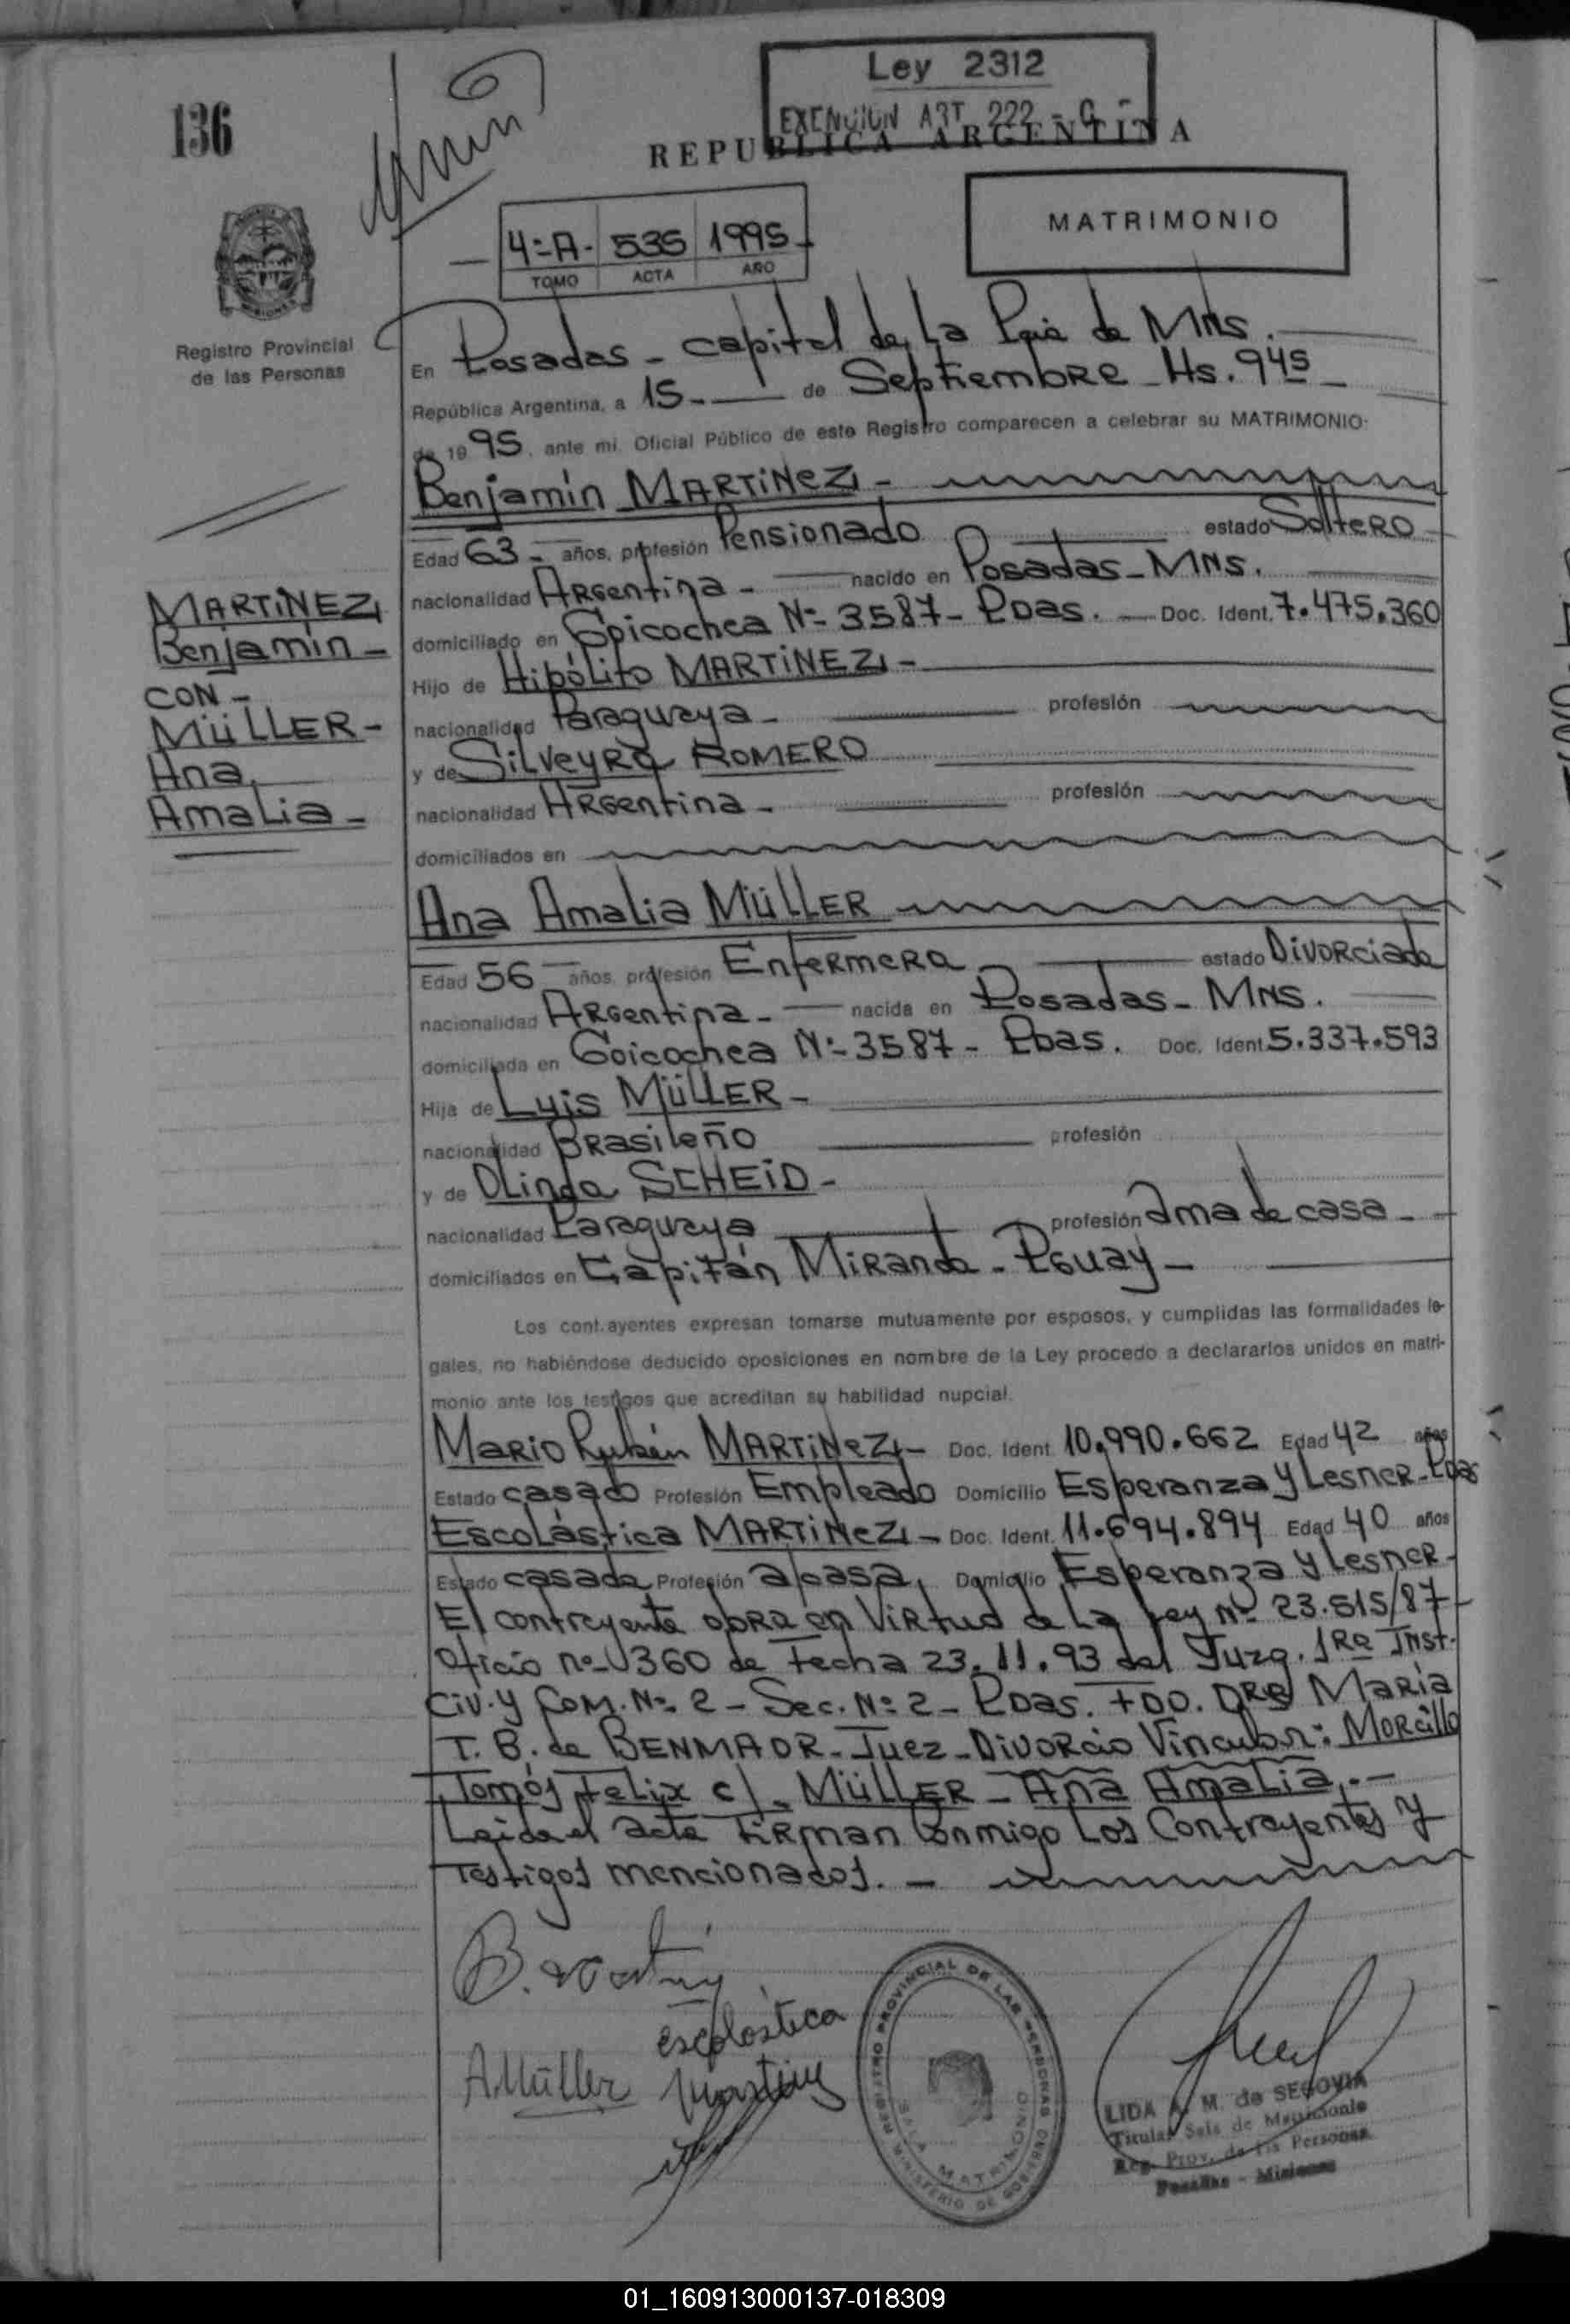 136
Ley 2312
EXENCION ART 222 - C -
REPUBLICA ARGENTINA
MATRIMONIO
4º-A- 535 1995
TOMO ACTA AÑO
Registro Provincial
de las Personas
En Posadas - capital de La Pcia de MNS.
República Argentina, a 15 - de Septiembre - Hs. 945 -
de 1995, ante mi Oficial Público de este Registro comparecen a celebrar su MATRIMONIO:
Benjamín MARTINEZ -
Edad 63 - años, profesión Pensionado estado Soltero
nacionalidad Argentina - nacido en Posadas - MNS.
domiciliado en Goicochea Nº 3587 - Pdas. - Doc. Ident. 7.475.360
Hijo de Hipólito MARTINEZ -
nacionalidad Paraguaya - profesión
y de Silveyra ROMERO
nacionalidad Argentina - profesión
domiciliados en
MARTINEZ
Benjamín -
CON -
MÜLLER -
Ana
Amalia -
Ana Amalia MÜLLER
Edad 56 años, profesión Enfermera estado Divorciada
nacionalidad Argentina - nacida en Posadas - MNS.
domiciliada en Goicochea Nº 3587 - Pdas. Doc. Ident 5.337.593
Hija de Luis MÜLLER -
nacionalidad Brasileño profesión
y de Olinda SCHEID -
nacionalidad Paraguaya profesión ama de casa -
domiciliados en Capitán Miranda - Pguay -
Los cont.ayentes expresan tomarse mutuamente por esposos, y cumplidas las formalidades le-
gales, no habiéndose deducido oposiciones en nombre de la Ley procedo a declararlos unidos en matri-
monio ante los testigos que acreditan su habilidad nupcial.
Mario Rubén MARTINEZ - Doc. Ident. 10.990.662 Edad 42 años
Estado casado Profesión Empleado Domicilio Esperanza y Lesner - Pdas
Escolástica MARTINEZ - Doc. Ident. 11.694.894 Edad 40 años
Estado casada Profesión a/casa, Domicilio Esperanza y Lesner -
El contrayente obra en Virtud de La Ley Nº 23.515/87 -
Oficio nº 360 de fecha 23.11.93 del Juzg. 1Ra Inst.
Civ. y Com. Nº 2 - Sec. Nº 2 - Pdas. FDO. DRA María
T. B. de BENMAOR - Juez - Divorcio Vincular: Morcillo
Tomás Felix c/ MÜLLER - Ana Amalia. -
Leida el acta firman Conmigo Los Contrayentes y
Testigos mencionados. -
A.Müller
escolástica
Martínez
REGISTRO PROVINCIAL DE LAS PERSONAS
MINISTERIO DE GOBIERNO
SALA MATRIMONIO
LIDA A. M. de SEGOVIA
Titular Sala de Matrimonio
Reg. Prov. de las Personas
Posadas - Misiones
01_160913000137-018309